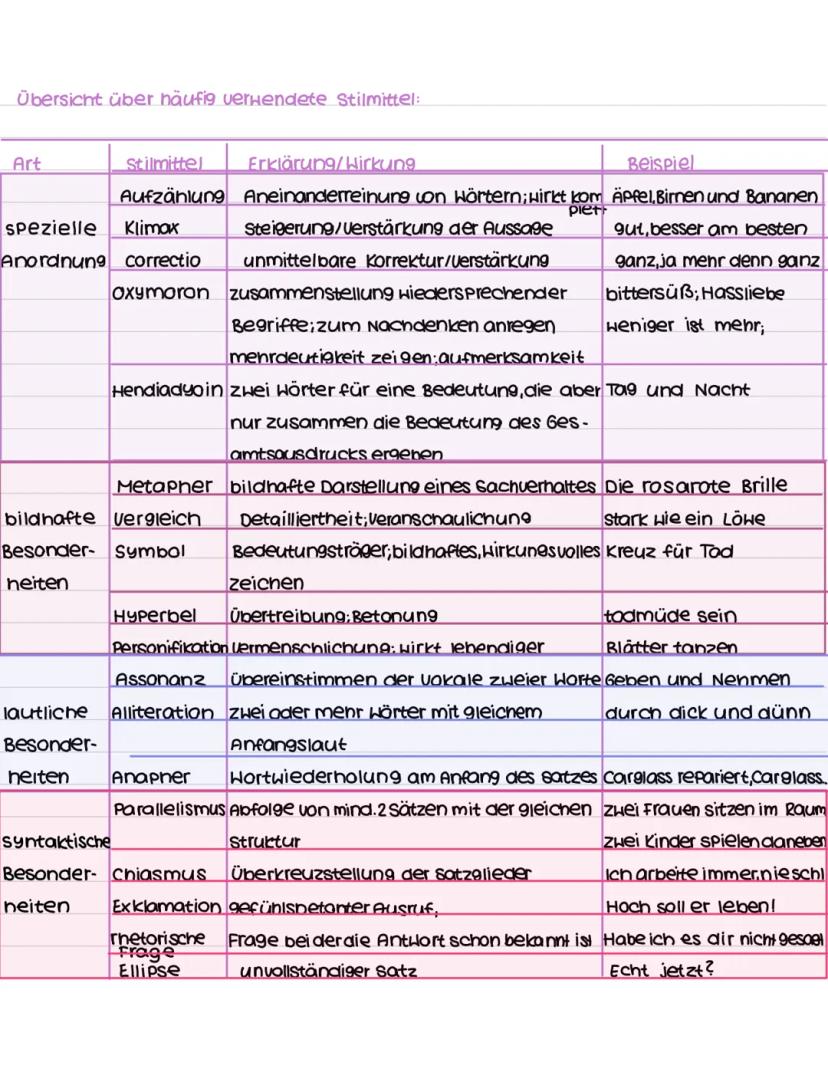 Übersicht über häufig verwendete Stilmittel:
Art Stilmittel Erklärung/Wirkung Beispiel
Aufzählung Aneinanderreihung von Wörtern; wirkt kom Äpfel, Birnen und Bananen
plett
spezielle Klimax Steigerung/Verstärkung der Aussage gut, besser am besten
Anordnung correctio unmittelbare Korrektur/Verstärkung ganz, ja mehr denn ganz
Oxymoron zusammenstellung wiedersprechender bittersüß; Hassliebe
Begriffe; zum Nachdenken anregen weniger ist mehr;
mehrdeutigkeit zeigen; aufmerksamkeit
Hendiadyoin zwei Wörter für eine Bedeutung, die aber Tag und Nacht
nur zusammen die Bedeutung des Ges-
amtsausdrucks ergeben
Metapher bildhafte Darstellung eines Sachverhaltes Die rosarote Brille
bildhafte Vergleich Detailliertheit; Veranschaulichung stark wie ein Löwe
Besonder- Symbol Bedeutungsträger; bildhaftes, wirkungsvolles Kreuz für Tod
heiten zeichen
Hyperbel Übertreibung; Betonung todmüde sein
Personifikation Vermenschlichung; wirkt lebendiger Blätter tanzen
Assonanz Übereinstimmen der Vokale zweier Worte Geben und Nehmen
lautliche Alliteration zwei oder mehr Wörter mit gleichem durch dick und dünn
Besonder- Anfangslaut
heiten Anapher Wortwiederholung am Anfang des Satzes Carglass repariert, Carglass..
Parallelismus Abfolge von mind. 2 Sätzen mit der gleichen zwei Frauen sitzen im Raum
syntaktische struktur zwei Kinder spielen daneben
Besonder- Chiasmus Überkreuzstellung der Satzglieder Ich arbeite immer, nie schl
heiten Exklamation gefühlsbetonter Ausruf, Hoch soll er leben!
rhetorische Frage bei der die Antwort schon bekannt ist Habe ich es dir nicht gesagt
Frage
Ellipse unvollständiger Satz Echt jetzt?